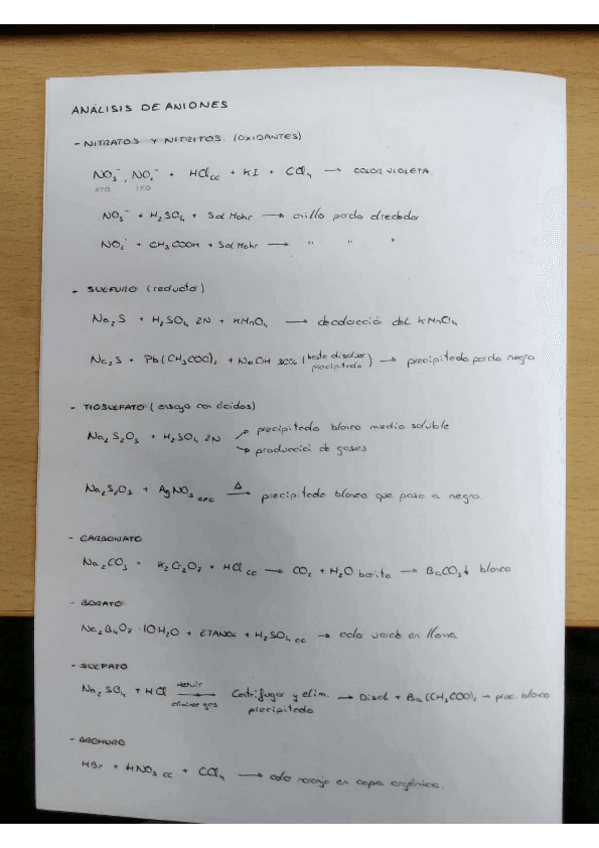 ANÁLISIS DE ANIONES
- NITRATOS Y NITRITOS. (OXIDANTES)
NO₃⁻, NO₂⁻ + HCl cc + KI + CCl₄ → COLOR VIOLETA.
ATO ITO
NO₃⁻ + H₂SO₄ + Sal Mohr → anillo pardo alrededor
NO₂⁻ + CH₃COOH + Sal Mohr → " " "
- SULFURO (reductor)
Na₂S + H₂SO₄ 2N + KMnO₄ → decoloració del KMnO₄
Na₂S + Pb(CH₃COO)₂ + NaOH 30% (hasta disolver precipitado) → precipitado pardo negro
- TIOSULFATO (ensayo con ácidos)
Na₂S₂O₃ + H₂SO₄ 2N ↗ precipitado blanco medio soluble
↘ producció de gases
Na₂S₂O₃ + AgNO₃ exc Δ→ precipitado blanco que pasa a negro.
- CARBONATO
Na₂CO₃ + K₂Cr₂O₇ + HCl cc → CO₂ + H₂O barita → BaCO₃↓ blanco
- BORATO
Na₂B₄O₇ · 10H₂O + ETANOL + H₂SO₄ cc → color verde en llama
- SULFATO
Na₂SO₄ + HCl → Centrifugar y elim. precipitado → Disol + Ba(CH₃COO)₂ → prec. blanco
eliminar gas
- BROMURO
HBr + HNO₃ cc + CCl₄ → color naranja en capa orgánica.